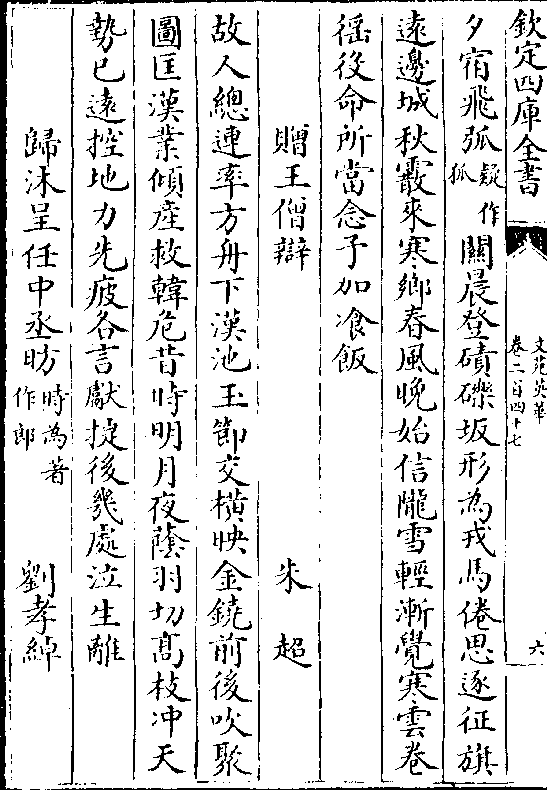 欽定四庫全書
文苑英華
卷二百四十七
六
夕宿飛弧疑作狐關晨登磧礫坂形為戎馬倦思逐征旗
遠邊城秋霰來寒鄉春風晚始信隴雪輕漸覺寒雲卷
徭役命所當念子加飡飯
贈王僧辯 朱超
故人總連率方舟下漢池玉節交橫映金鐃前後吹聚
圖匡漢業傾産救韓危昔時明月夜蔭羽切髙枝冲天
勢已遠控地力先疲各言獻捷後幾處泣生離
歸沐呈任中丞昉時為著作郎 劉孝綽